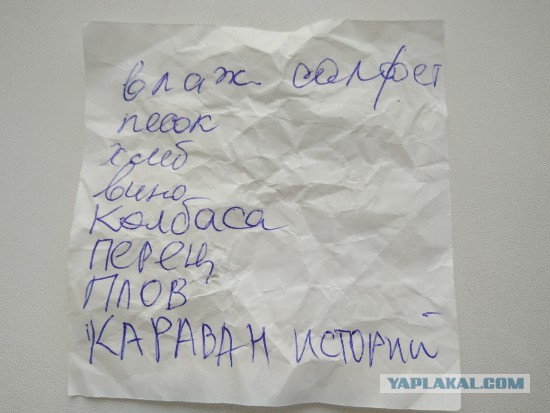 влаж салфет
песок
хлеб
вино
колбаса
перец
плов
"КАРАВАН ИСТОРИЙ
YAPLAKAL.COM